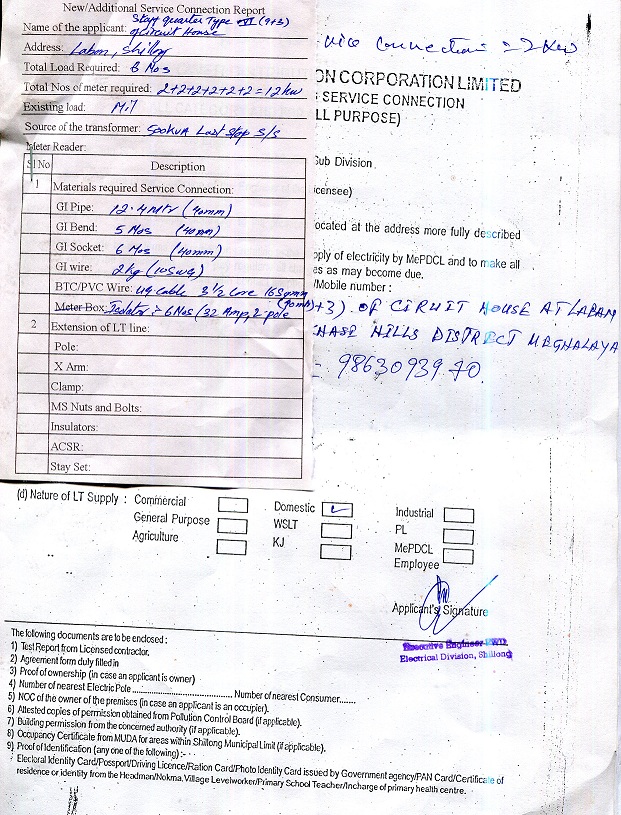 New/Additional Service Connection Report
Name of the applicant: Staff quarter Type VI (9+3)
of Circuit House
Address: Laban, Shillong
Total Load Required: 6 Nos
Total Nos of meter required: 2+2+2+2+2+2=12 kw
Existing load: Nil
Source of the transformer: Last Stop S/S
Meter Reader:
Sl No Description
1 Materials required Service Connection:
GI Pipe: 12.4 Mtr (40mm)
GI Bend: 5 Nos (40mm)
GI Socket: 6 Nos (40mm)
GI wire: 2kg (10SWG)
BTC/PVC Wire: UG cable 3½ Core 16Sqmm
(90mtr)
Meter Box: Isolator :- 6 Nos (32 Amp, 2-pole
2 Extension of LT line:
Pole:
X Arm:
Clamp:
MS Nuts and Bolts:
Insulators:
ACSR:
Stay Set:
vice Connection :- 2 Kw
ON CORPORATION LIMITED
SERVICE CONNECTION
LL PURPOSE)
Sub Division
icensee)
ocated at the address more fully described
pply of electricity by MePDCL and to make all
es as may become due.
/Mobile number :
+3). OF CIRUIT HOUSE AT LABAN
HASE HILLS DISTRICT MEGHALAYA
= 9863093970
(d) Nature of LT Supply : Commercial Domestic Industrial
General Purpose WSLT PL
Agriculture KJ MePDCL
Employee
Applicant's Signature
Executive Engineer PWD.
Electrical Division, Shillong
The following documents are to be enclosed :
1) Test Report from Licensed contractor.
2) Agreement form duly filled in
3) Proof of ownership (in case an applicant is owner)
4) Number of nearest Electric Pole .................................... Number of nearest Consumer.......
5) NOC of the owner of the premises (in case an applicant is an occupier).
6) Attested copies of permission obtained from Pollution Control Board (if applicable).
7) Building permission from the concerned authority (if applicable).
8) Occupancy Certificate from MUDA for areas within Shillong Municipal Limit (if applicable).
9) Proof of Identification (any one of the following) :-
Electoral Identity Card/Possport/Driving Licence/Ration Card/Photo Identity Card issued by Government agency/PAN Card/Certificate of
residence or identity from the Headman/Nokma. Village Levelworker/Primary School Teacher/Incharge of primary health centre.